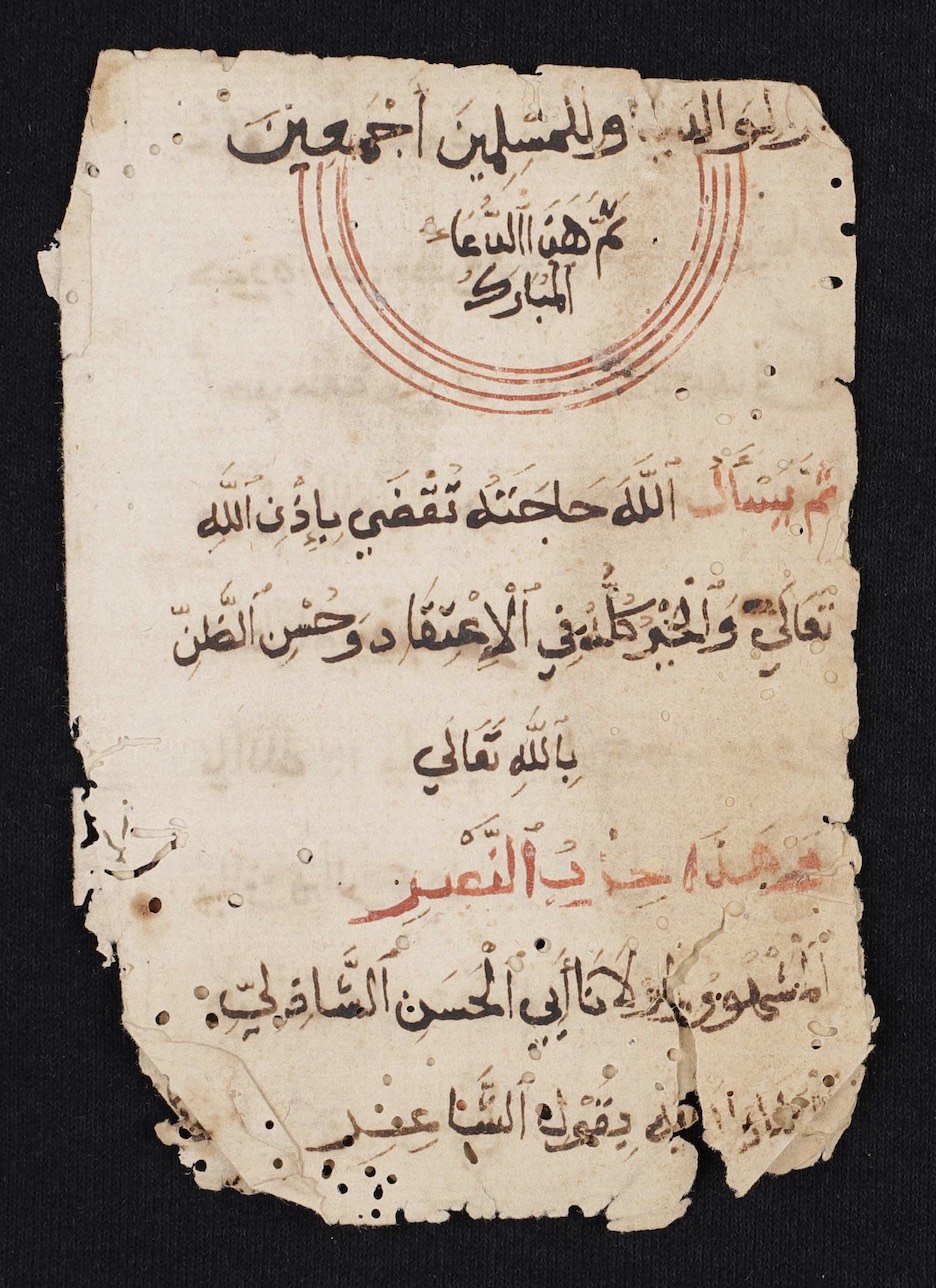 ولوالدينا وللمسلمين أجمعين
تمّ هذا الدّعا
المبارك
ثمّ يسأل اللّه حاجته تقضي بإذن اللّه
تعالي والخير كلّه في الإعتقاد وحسن الظّنّ
باللّه تعالي
وهذا حزب النّصر
المشهور لمولانا أبي الحسن الشّاذليّ
يقول الشّاعر